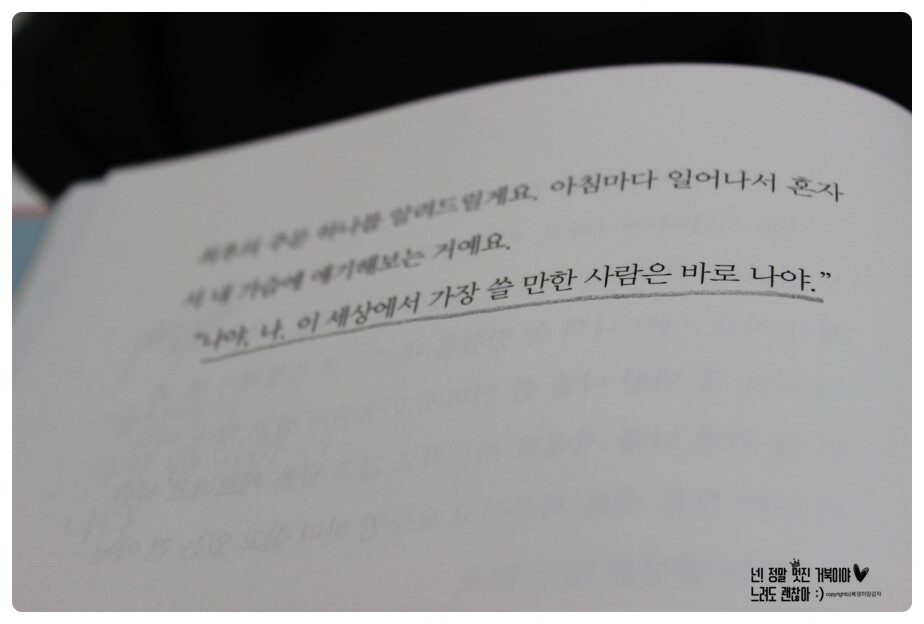 최후의 주문 하나를 알려드릴게요. 아침마다 일어나서 혼자
서 내 가슴에 얘기해보는 거예요.
"나야, 나. 이 세상에서 가장 쓸 만한 사람은 바로 나야."
넌! 정말 멋진 거북이야
느려도 괜찮아 :) copyright(c)복덩이맘감자